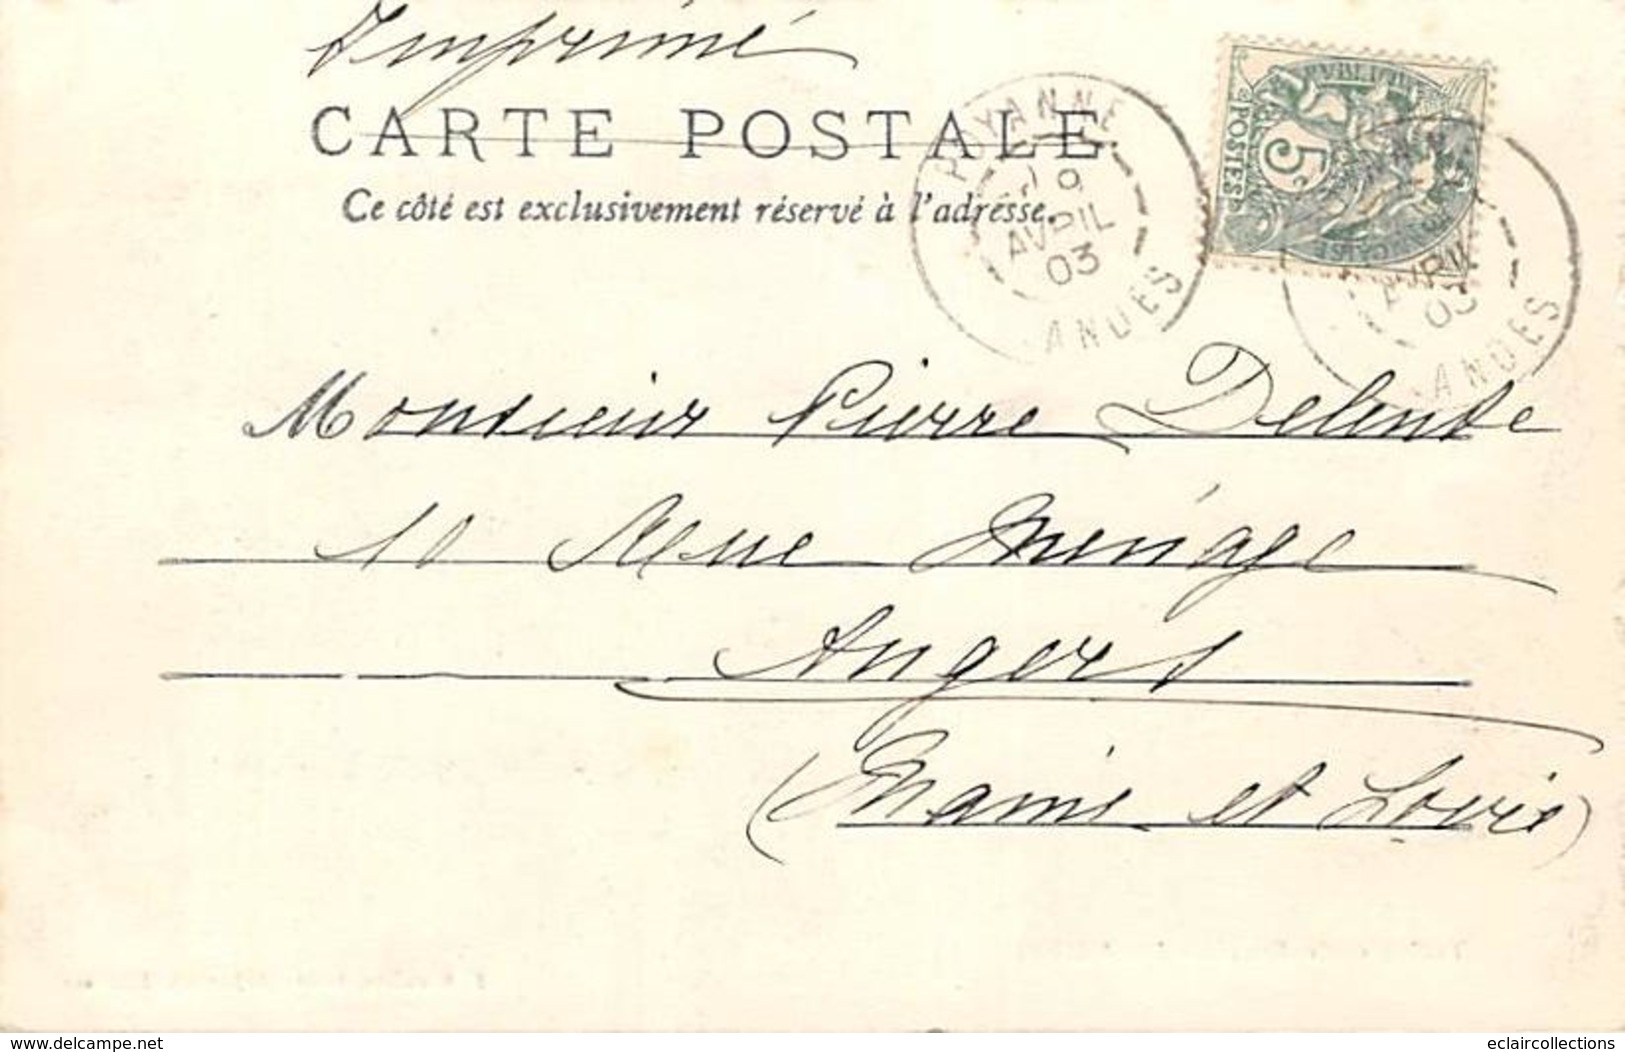 Imprimé
CARTE POSTALE
Ce côté est exclusivement réservé à l'adresse.
POYANNE
AVRIL
03
LANDES
RÉPUBLIQUE FRANÇAISE
POSTES
5c
AVRIL
03
LANDES
Monsieur Pierre Delente
10 Rue Ménage
Angers
(Maine et Loire)
www.delcampe.net
eclaircollections